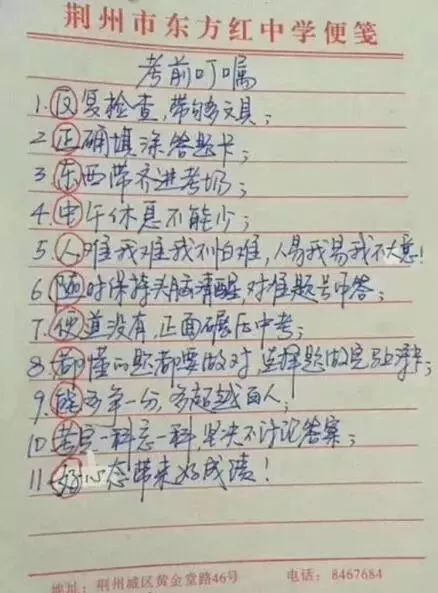 荆州市东方红中学便笺
考前叮嘱
1.反复检查,带够文具;
2.正确填涂答题卡;
3.东西带齐进考场;
4.中午休息不能少;
5.人难我难我不怕难,人易我易我不大意!
6.随时保持头脑清醒,对准题号作答;
7.便道没有,正面碾压中考;
8.都懂的题都要做对,选择题做完马上涂卡;
9.能多争一分,多超越百人;
10.考完一科忘一科,坚决不讨论答案;
11.好心态带来好成绩!
地址:荆州城区黄金堂路46号 电话:8467684